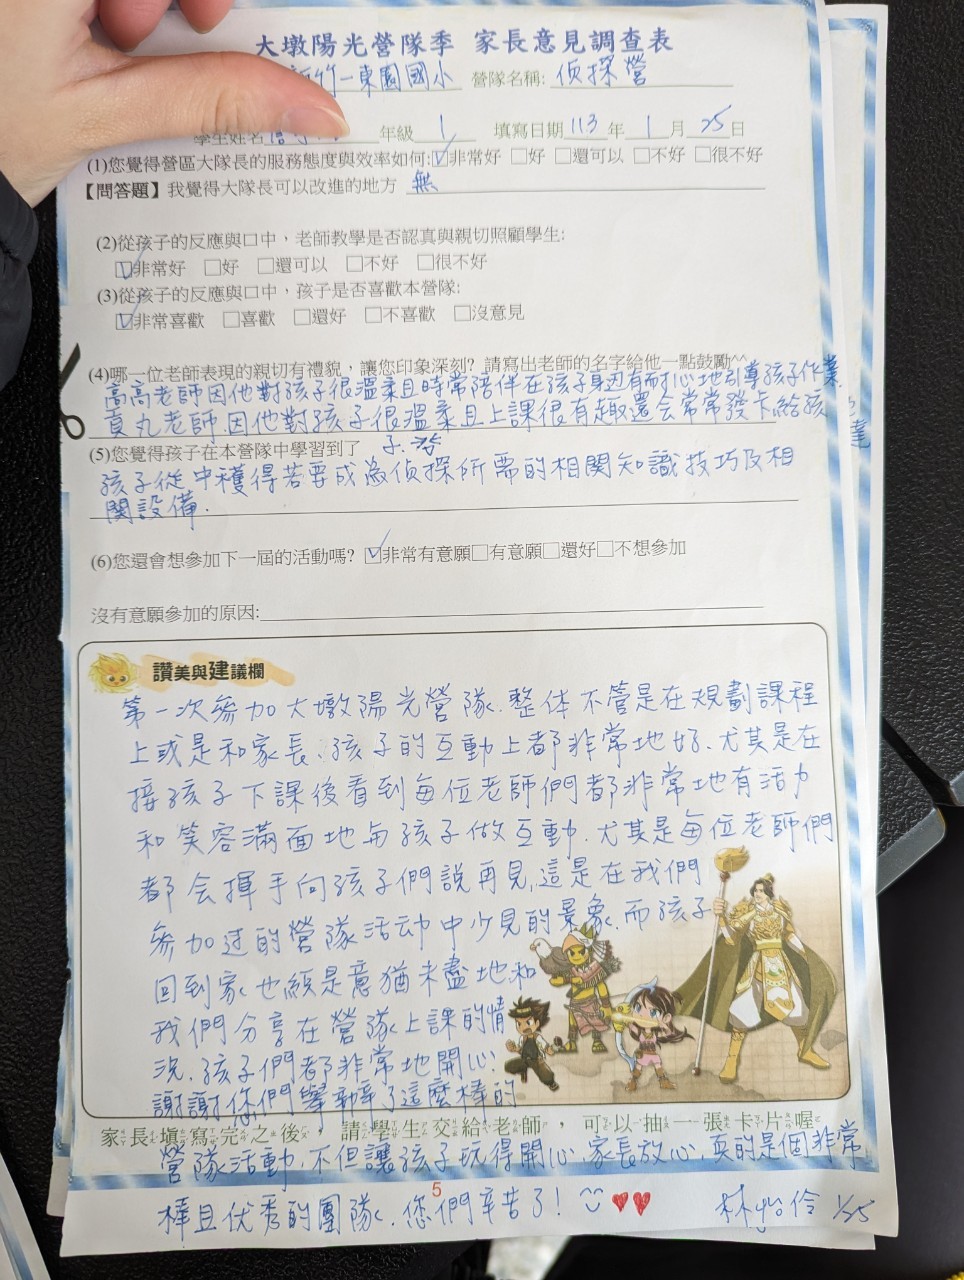 大墩陽光營隊季 家長意見調查表
新竹-東園國小 營隊名稱: 偵探營
學生姓名 年級 1 填寫日期 113 年 1 月 25 日
(1)您覺得營區大隊長的服務態度與效率如何:☑非常好 □好 □還可以 □不好 □很不好
【問答題】我覺得大隊長可以改進的地方 無
(2)從孩子的反應與口中，老師教學是否認真與親切照顧學生:
☑非常好 □好 □還可以 □不好 □很不好
(3)從孩子的反應與口中，孩子是否喜歡本營隊:
☑非常喜歡 □喜歡 □還好 □不喜歡 □沒意見
(4)哪一位老師表現的親切有禮貌，讓您印象深刻? 請寫出老師的名字給他一點鼓勵^^
高高老師因他對孩子很溫柔且時常陪伴在孩子身边有耐心地引導孩子作業.
貢丸老師.因他對孩子很溫柔且上課很有趣還会常常發卡給孩
子.
(5)您覺得孩子在本營隊中學習到了
孩子從中穫得若要成為偵探所需的相関知識技巧及相
関設備.
(6)您還會想參加下一屆的活動嗎? ☑非常有意願□有意願□還好□不想參加
沒有意願參加的原因:
讚美與建議欄
第一次參加大墩陽光營隊.整体不管是在規劃課程
上或是和家長、孩子的互動上都非常地好.尤其是在
接孩子下課後看到每位老師們都非常地有活力
和笑容滿面地与孩子做互動.尤其是每位老師們
都会揮手向孩子們說再見,這是在我們
參加过的營隊活动中少見的景象.而孩子
回到家也總是意猶未盡地和
我們分享在營隊上課的情
況.孩子們都非常地開心.
謝謝你們舉辦了這麼棒的
家長填寫完之後，請學生交給老師，可以抽一張卡片喔
營隊活動.不但讓孩子玩得開心.家長放心.真的是個非常
棒且优秀的團隊.您們辛苦了!
5
林怡伶 1/25